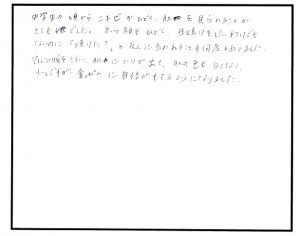 中学生の頃からニキビがひどく、肌を見られることが
とても嫌でした。赤ら顔もひどく、日焼けをしたわけでも
ないのに「焼けた?」と友人に言われることも何度もありました。
を行ない、肌にハリが出て、肌の色も白くなり、
ですが、素っぴんに自信がもてるようになりました。